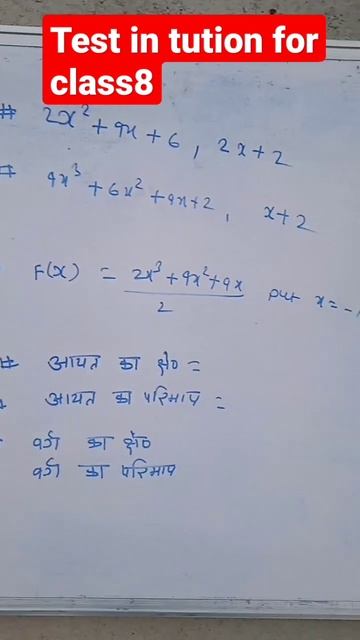 Test in tution for
class8
# 2x² + 9x + 6 , 2x + 2
# 9x³ + 6x² + 9x + 2 , x + 2
F(x) = 2x³ + 9x² + 9x / 2 put x = -
# आयत का क्षे० =
आयत का परिमाप =
वर्ग का क्षे०
वर्ग का परिमाप